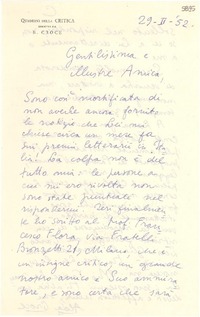 5855
QUADERNI DELLA CRITICA
DIRETTI DA
B. CROCE
29-II-52.
Gentilissima e
Illustre Amica,
Sono così mortificata di
non averle ancora fornito
le notizie che Lei mi
chiese circa un mese fa
sui premi letterarii in Ita-
lia! La colpa non è del
tutto mia: le persone a
cui mi ero rivolta non
sono state puntuali nel
rispondermi. Ieri finalmen-
te ho scritto al Prof. Fran-
cesco Flora, via Fratelli
Bronzetti 21, Milano, che è
un insigne critico, un grande
nostro amico e Suo ammira-
tore, e sono certa che sarà